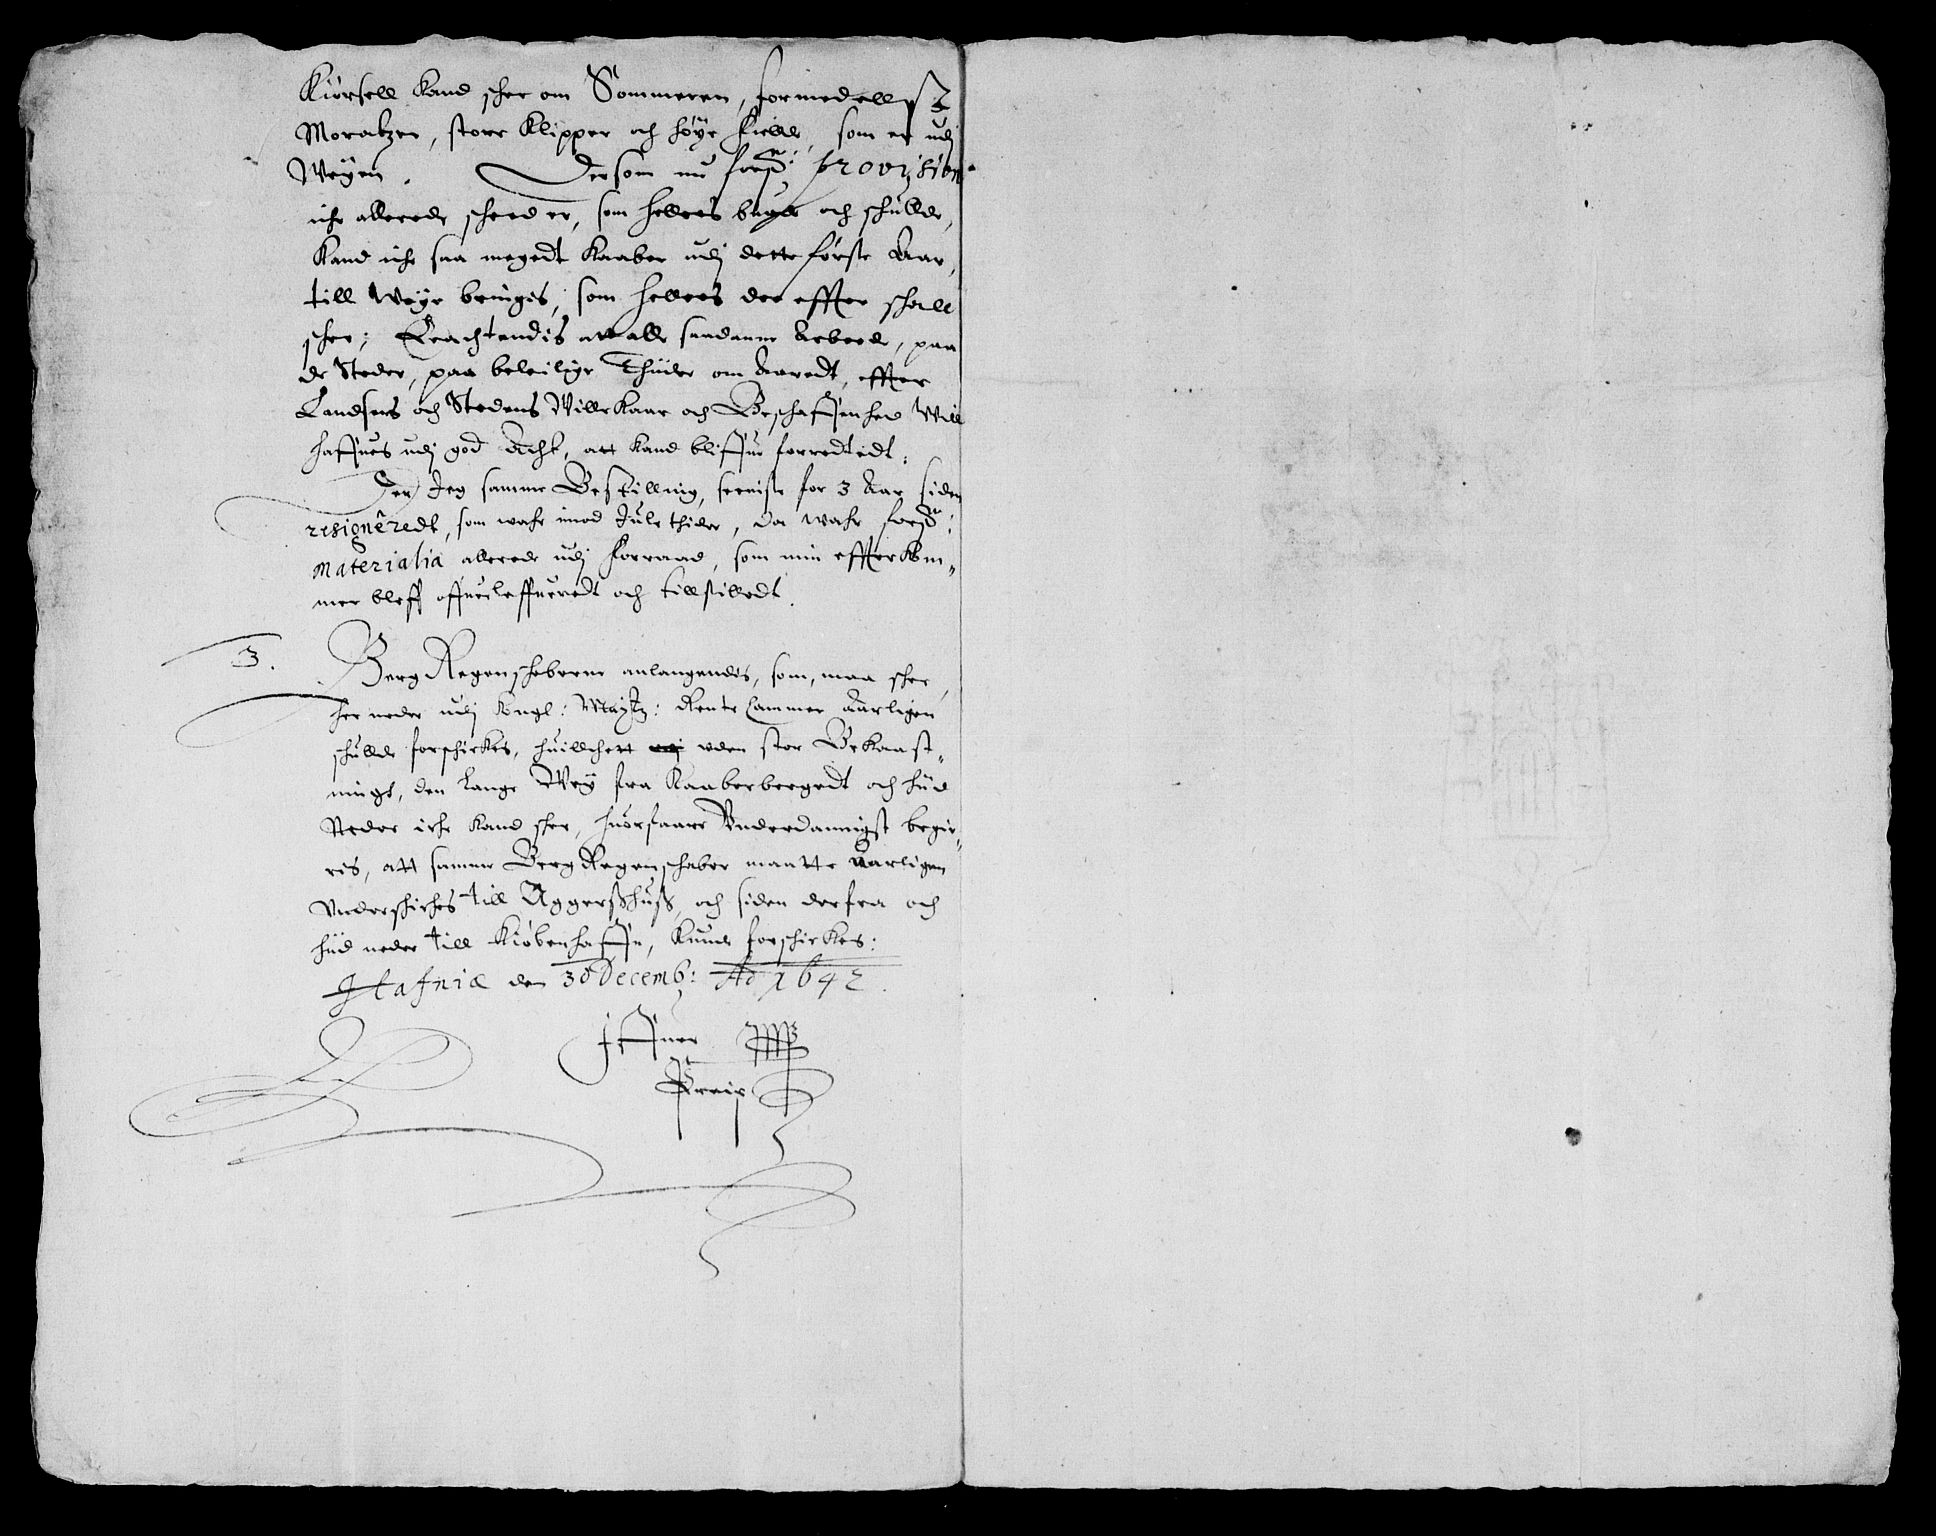 Kiørsell kand schee om Sommeren, formedellst
Moratzer, store Klipper och høye Fielde, som er udj
Weyen. Dersom nu forschr: provision
iche allerede scheed er, som hellers burde och schulde,
kand iche saa megedt Kaaber udj dette første Aar,
till Weye bringis, som hellers der effter schall
schee; Eractendis att alle saadanne Arbeede, paa
de Steder, paa beleilige Thiider om Aaredt, effter
Landsens och Stedens Willckaar och Beschaffenhed will
haffues udj god Acht, att kand bliffue forredtidt.
Der Jeg samme Bestilling, seeniste for 3 Aar siden
resigneredt, som wahr imod Jule thider, da wahr forschr:
materialia allerede udj Forraad, som min effterkom-
mer bleff offuerleffueredt och tillstilledt.
3. Berg Regenscheberne anlangendis, som, maa schee,
her neder udj Kongl: Maytz: Rente Cammer Aarligen
schulde forschickes, huilchett uden stor Bekaast-
ninge, den lange Wey fra Kaaberbergedt och hiid
Neder iche kand schee, huorfaare Underdannigst begie-
ris, att samme Berg Regenschaber maatte aarligen
Underschickes till Aggerßhuß, och siden derfra och
hiid neder till Kiøbenhaffn, kunde forschickes:
Hafniæ den 30 Decemb: Ao 1642.
Iffuer
Preip